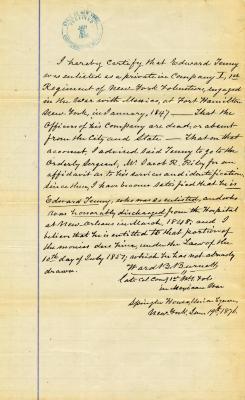 I hereby certify that Edward Tenny
was enlisted as a private in Company I, 1st
Regiment of New York Volunteers, engaged
in the War with Mexico, at Fort Hamilton
New York, in January, 1847 — That the
Officers of his Company are dead, or absent
from the City and State — That on that
account I advised Said Tenny to go to the
Orderly Sergeant, Mr Jacob R. Riley for an
affidavit as to his service and identification,
since then I have become satisfied that he is
Edward Tenny, who was enlisted, and who
was honorably discharged from the Hospital
at New Orleans in March, 1848; and I
believe that he is entitled to that portion of
the monies due him, under the Law of the
10th day of July 1851, which he has not already
drawn.
Ward B. Burnett
late Col Comg 1st N.Y. Vols
in Mexican War
Spingler House, Union Square
New York, Jan. 19th 1876.